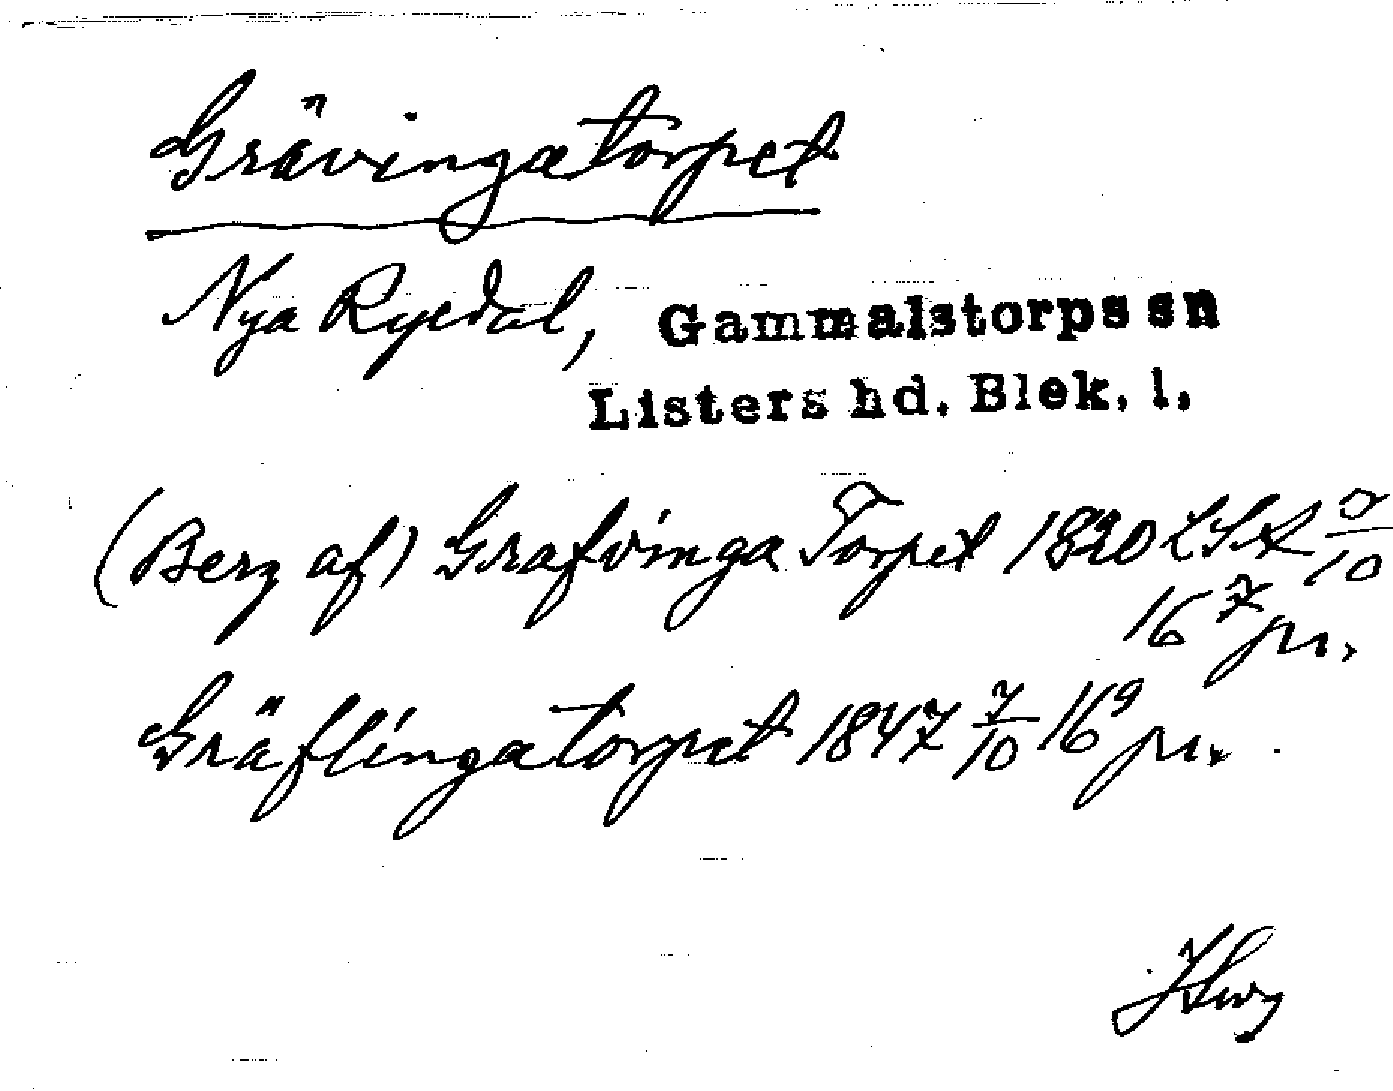 Grävingatorpet
Nya Ryedal, Gammalstorps sn
Listers hd. Blek. l.
(Berg af) Grafvinga Torpet 1820 LSA 7/10
16 7 pr.
Gräflingatorpet 1847 7/10 16 9 pr.